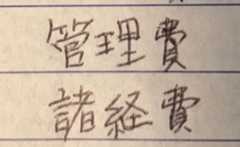 管理費
諸経費